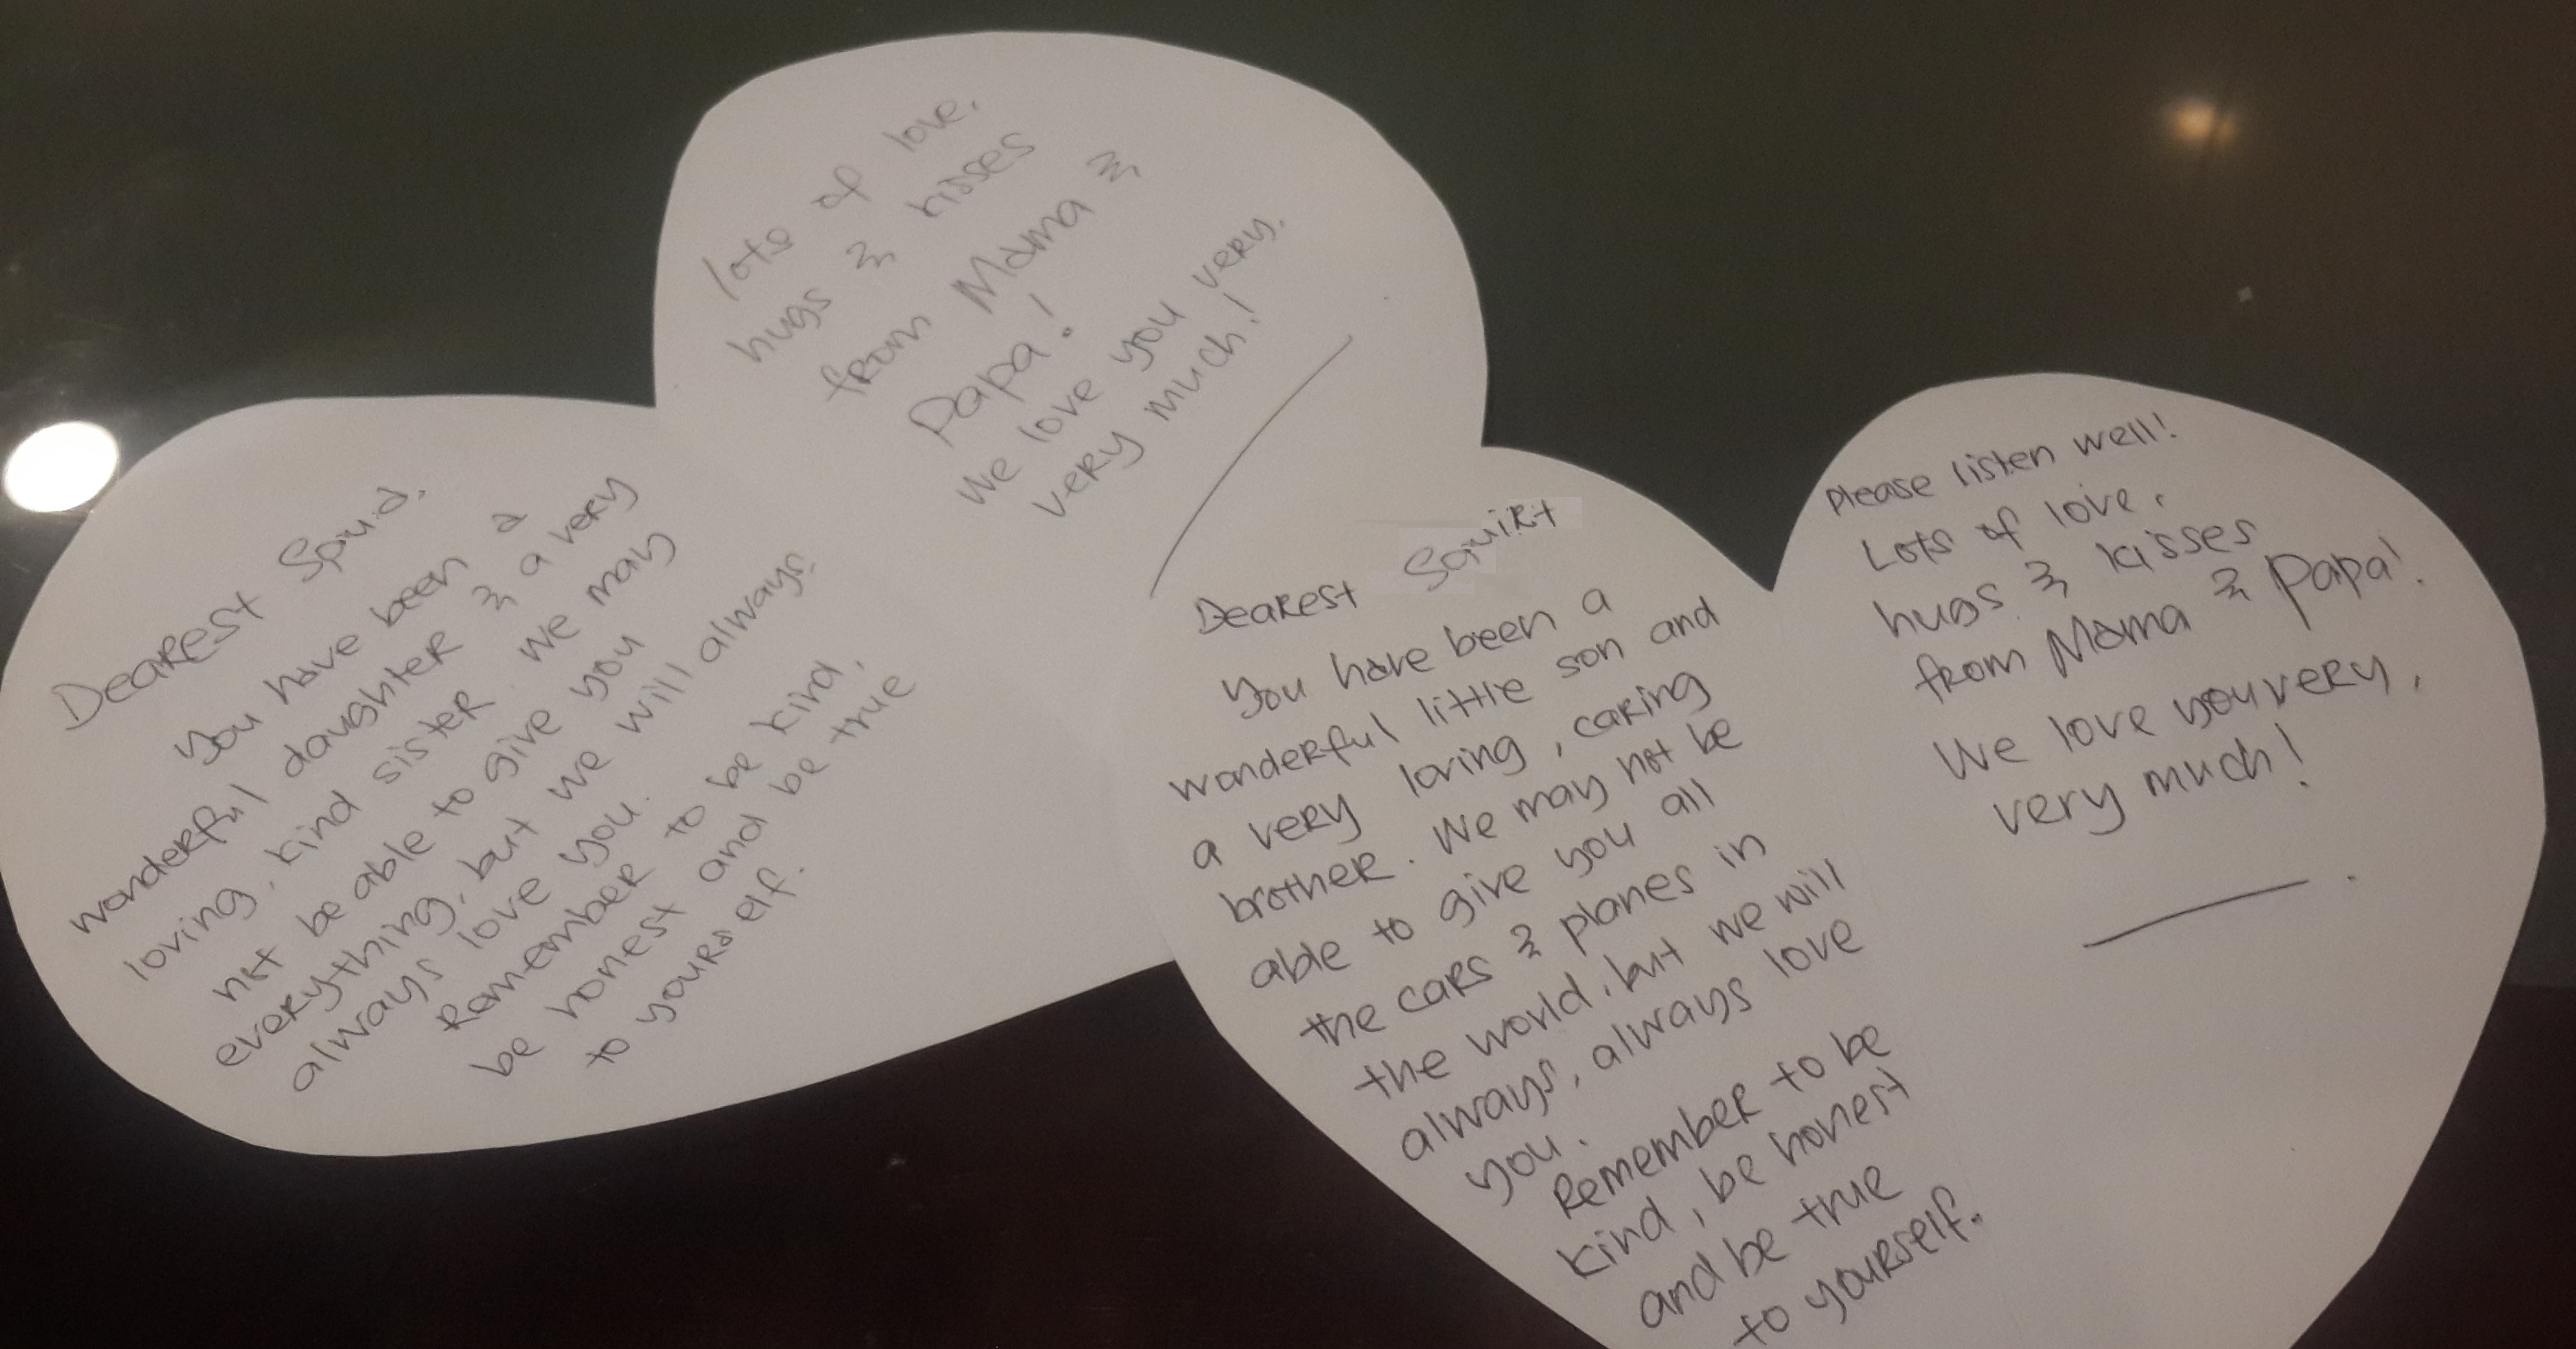 Dearest Spud,
you have been a
wonderful daughter & a very
loving, kind sister. We may
not be able to give you
everything, but we will always,
always love you.
Remember to be kind,
be honest and be true
to yourself.
lots of love,
hugs & kisses
from Mama &
Papa!
We love you very,
very much!
Dearest Squirt
you have been a
wonderful little son and
a very loving, caring
brother. We may not be
able to give you all
the cars & planes in
the world, but we will
always, always love
you.
Remember to be
kind, be honest
and be true
to yourself.
Please listen well!
Lots of love,
hugs & kisses
from Mama & Papa!
We love you very,
very much!